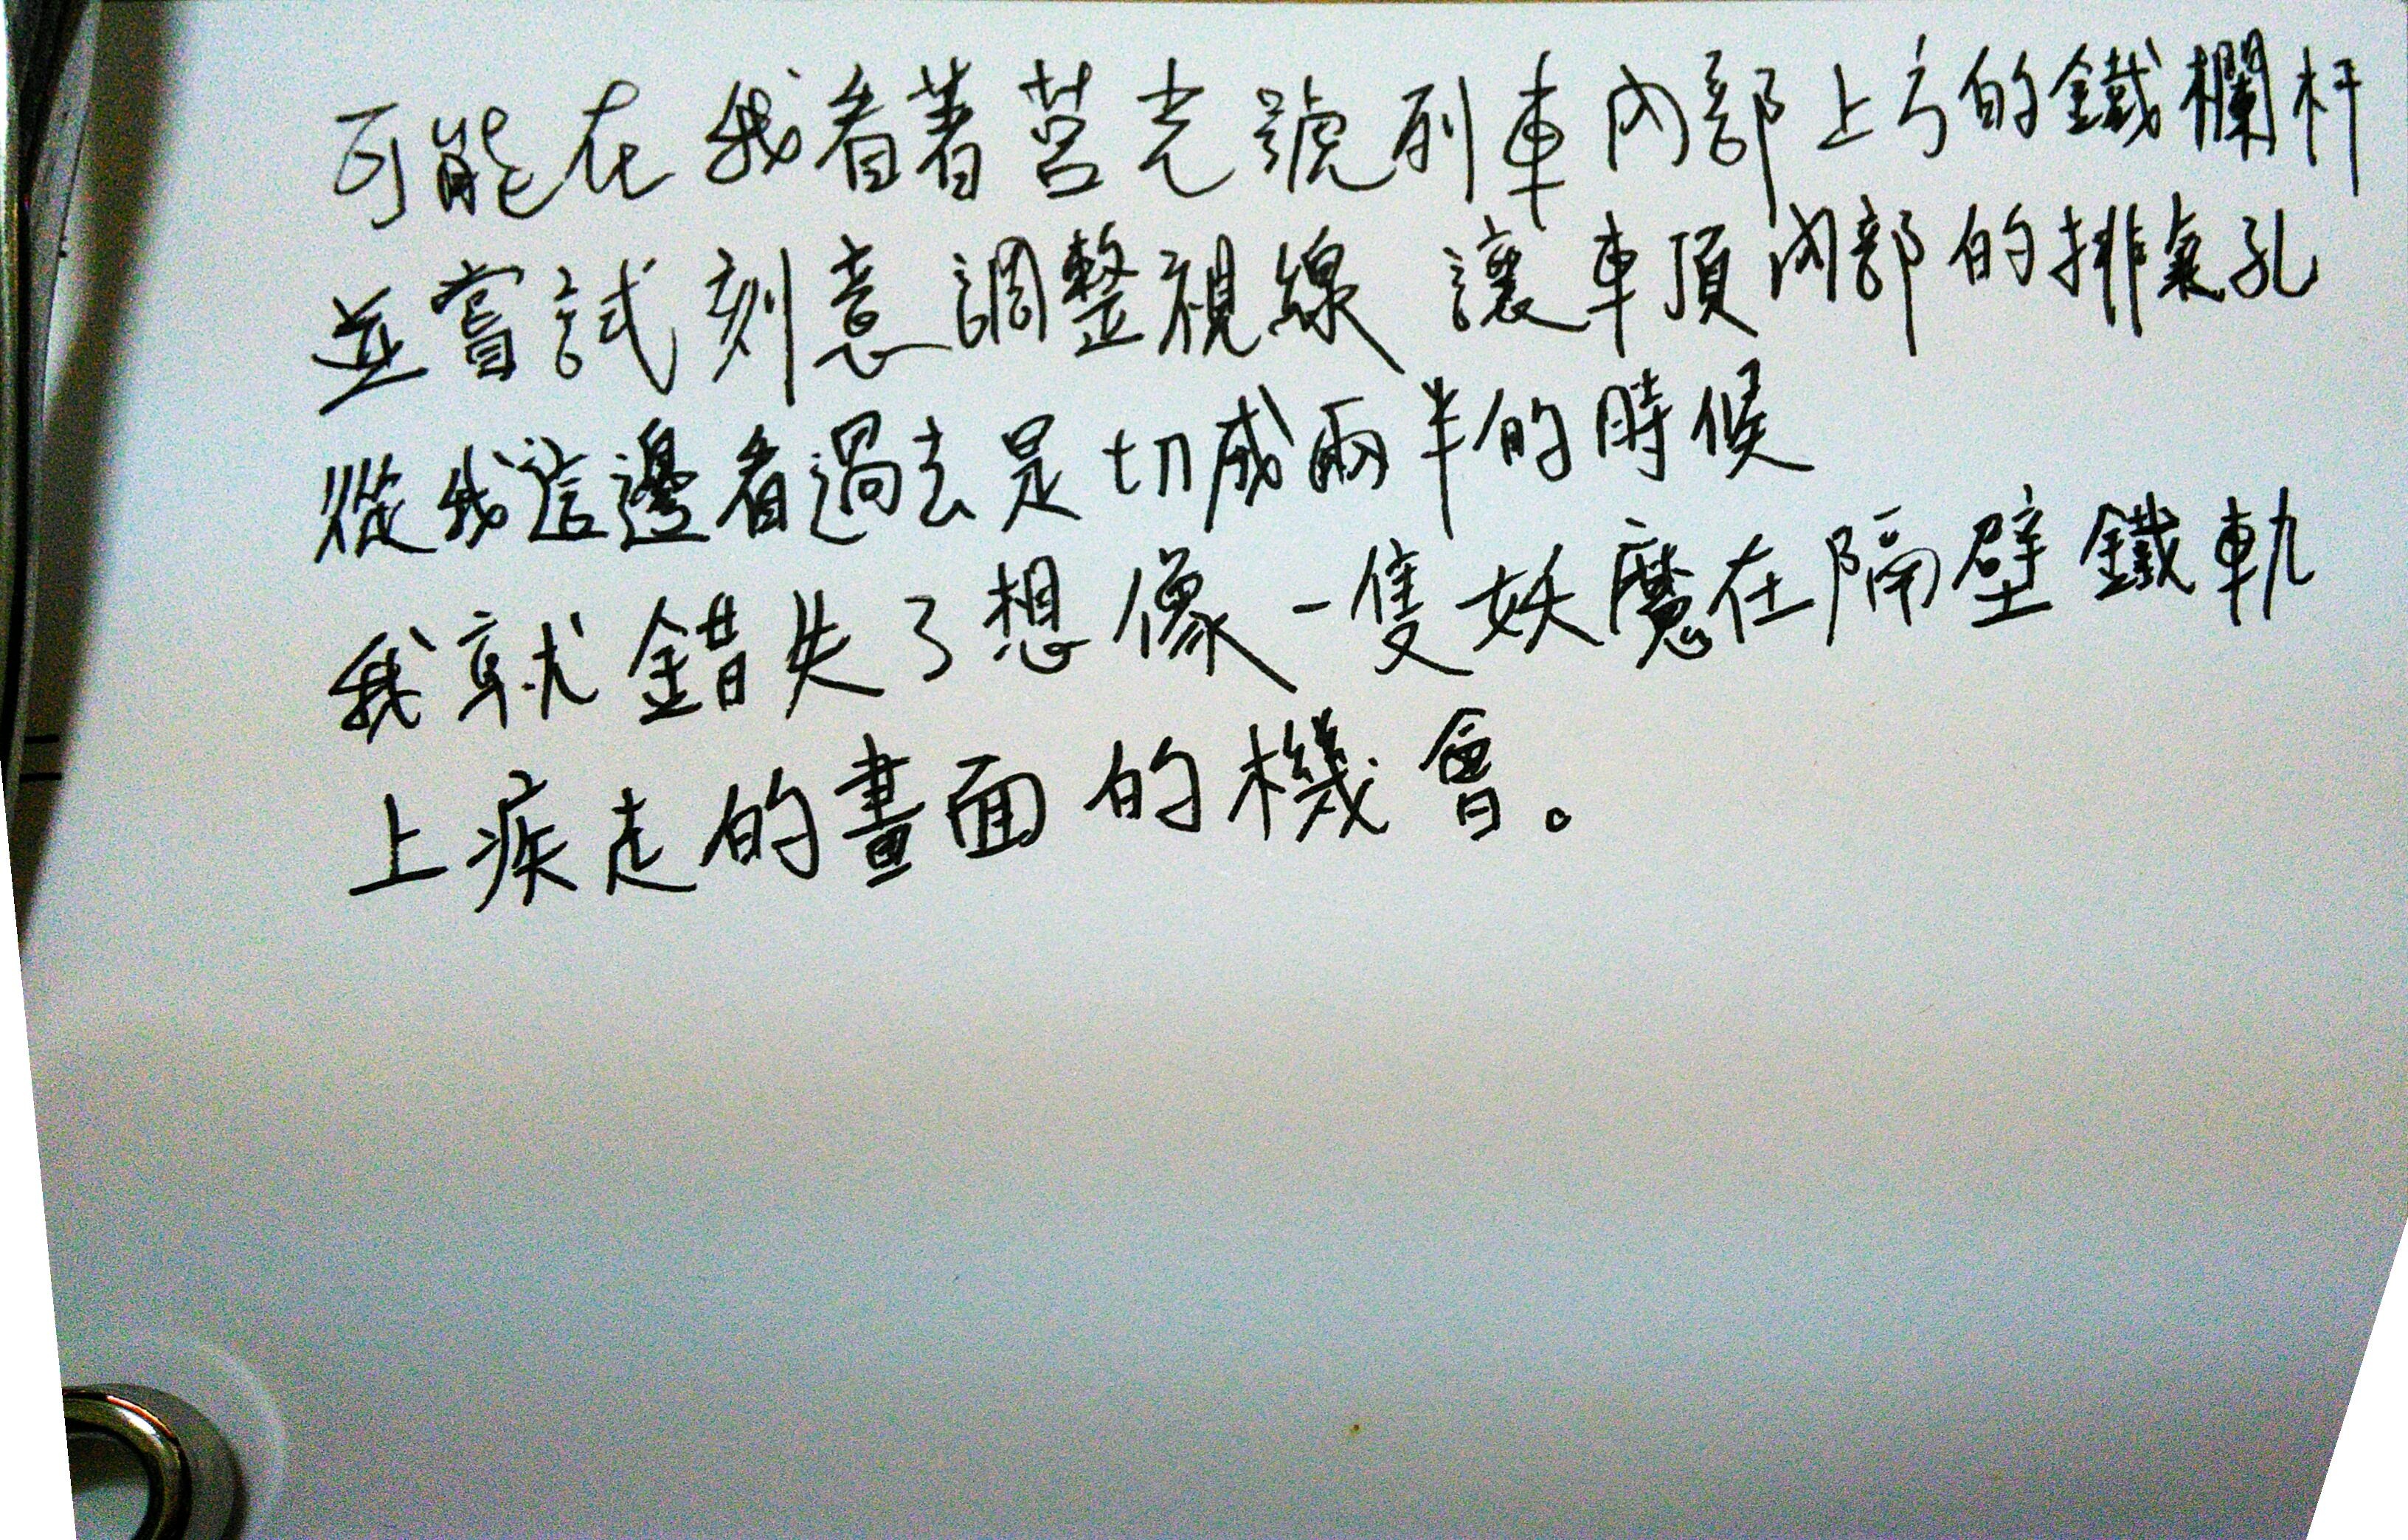 可能在我看著莒光號列車內部上方的鐵欄杆
並嘗試刻意調整視線 讓車頂內部的排氣孔
從我這邊看過去是切成兩半的時候
我就錯失了想像一隻妖魔在隔壁鐵軌
上疾走的畫面的機會。